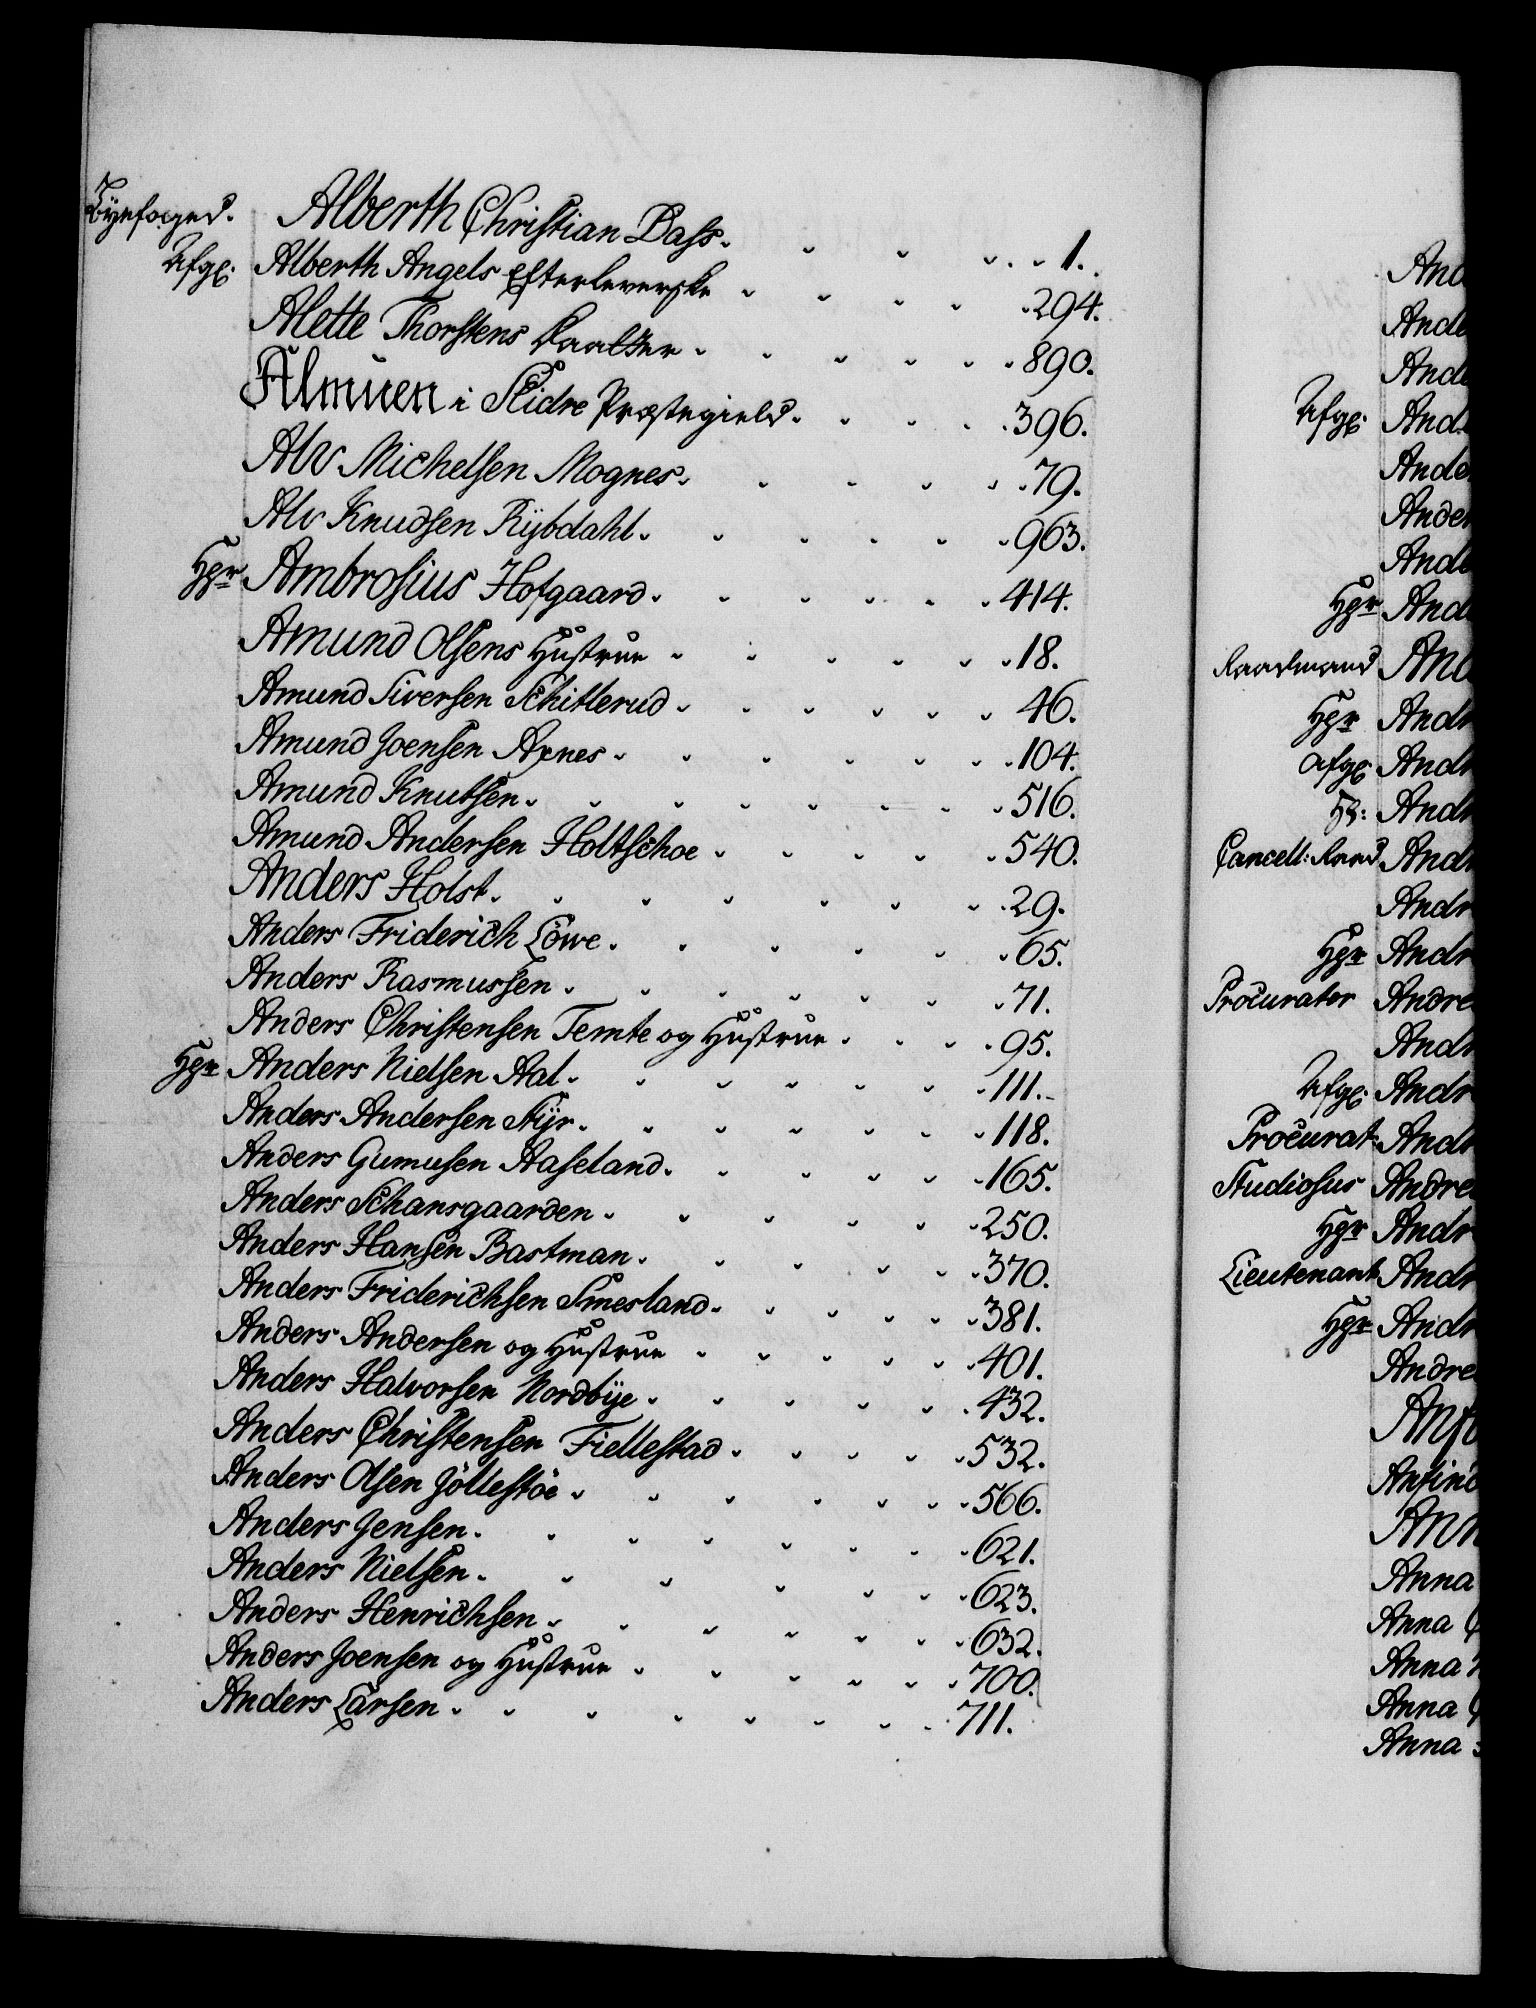 Byefoged. Alberth Christian Dass. 1.
Afg: Alberth Angels Efterleverske 294.
Alette Thorstens Daatter 890.
Almuen i Slidre Præstegield. 396.
Alv Michelsen Mognes. 79.
Alv Knudsen Rybdahl. 963.
Hgr Ambrosius Hofgaard. 414.
Amund Olsens Hustrue 18.
Amund Siversen Schitlerud 46.
Amund Joensen Arnes 104.
Amund Knutsen. 516.
Amund Andersen Holtschoe 540.
Anders Holst. 29.
Anders Friderich Löwe. 65.
Anders Rasmussen. 71.
Anders Christensen Temte og Hustrue 95.
Hgr Anders Nielsen Aal. 111.
Anders Andersen Styr. 118.
Anders Gumusen Aaseland. 165.
Anders Schansgaarden. 250.
Anders Hansen Bastman. 370.
Anders Friderichsen Smesland. 381.
Anders Andersen og Hustrue 401.
Anders Halvorsen Nordbÿe. 432.
Anders Christensen Fiellestad. 532.
Anders Olsen Jöllestöe. 566.
Anders Jensen. 621.
Anders Nielsen. 623.
Anders Henrichsen. 632.
Anders Joensen og Hustrue 700.
Anders Larsen. 711.
And
Ande
Ande
Afg: And
Ander
Ander
Ande
Hgr Ande
Raadmand And
Hgr Andr
Afg: Andr
Hr: Andr
Cancell: Raad Andr
Andr
Hgr Andr
Procurator Andre
Andr
Afg: Andr
Procurat: Andr
Studiosus Andre
Hgr Andr
Lieutenant Andr
Hgr Andr
Andre
Anf
Anfind
Ann
Anna
Anna
Anna
Anna
Anna